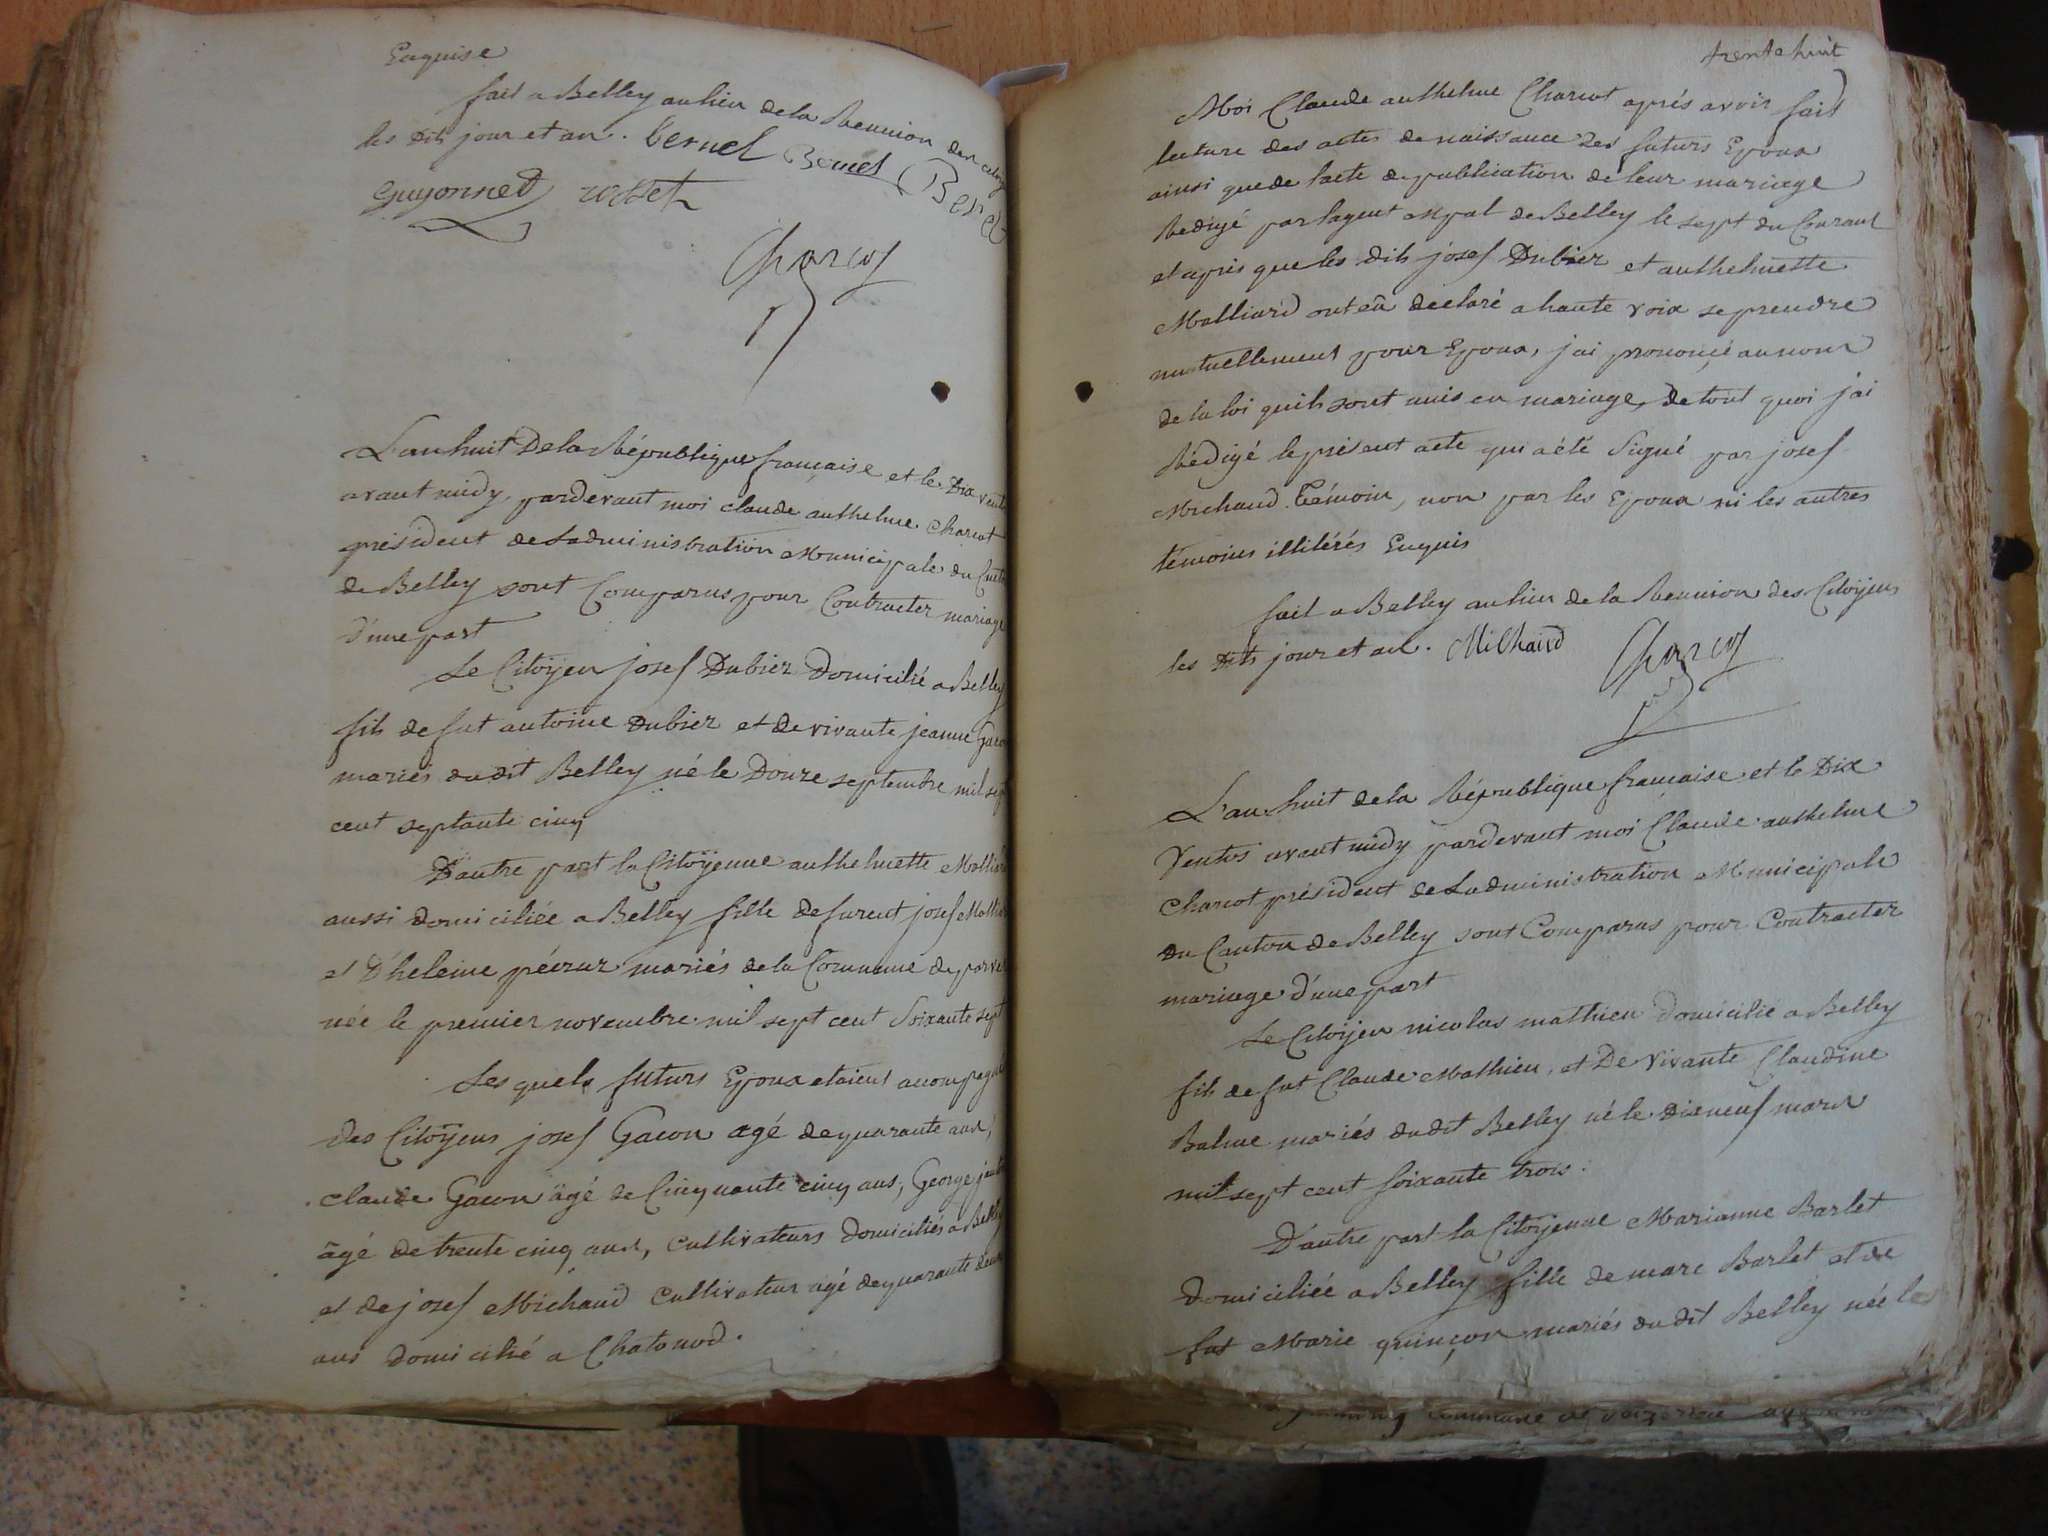 Enquise
fait a Belley au lieu de la Réunion des citoy
les dits jour et an. Bernel Bernel Bernel
Guyonnet rosset
Charcot
L'an huit De la République française et le Dix vento
avant midy, pardevant moi claude anthelme Charcot
président de Ladministration Municipale du Canto
de Belley sont Comparus pour Contracter mariage
d'une part
Le Citoÿen josef Dubier Domicilié a Belley
fils de fut antoine Dubier et de vivante jeanne Gaco
mariés dudit Belley né le Douze septembre mil sept
cent septante cinq
D'autre part la Citoÿenne anthelmette Malliard
aussi domiciliée a Belley fille de furent josef Mallia
et D'heleine mariés de la Commune de parve
née le premier novembre mil sept cent Soixante sept
Les quels futurs Epoux etaient acompagné
des Citoÿens josef Gacon agé de quarante ans,
claude Gacon âgé de Cinquante cinq ans, George
âgé de trente cinq ans, cultivateurs domiciliés a Belley
et de josef Michaud Cultivateur agé de quarante deux
ans domicilié a Chatonod.
trente huit
Moi Claude anthelme Charcot aprés avoir fait
lecture des actes de naissance des futurs Epoux
ainsi que de l'acte de publication de leur mariage
Redigé par l'agent mpal de Belley le sept du Courant
et aprés que les dits josef Dubier et anthelmette
Malliard ont eû declaré a haute voix se prendre
mutuellement pour Epoux, j'ai prononcé au nom
de la loi quils sont unis en mariage, de tout quoi j'ai
Rédigé le présent acte qui a été Signé par josef
Michaud Témoin, non par les Epoux ni les autres
témoins illitérés Enquis
fait a Belley au lieu de la Réunion des Citoÿens
les Dits jour et an. Michaud Charcot
L'an huit de la République française et le Dix
Ventos avant midy pardevant moi Claude anthelme
Charcot président de Ladministration Municipale
du Canton de Belley sont Comparus pour Contracter
mariage d'une part
Le Citoÿen nicolas mathieu domicilié a Belley
fils de fut Claude Mathieu, et De vivante Claudine
Balme mariés dudit Belley né le Dixneuf mars
mil sept cent soixante trois.
D'autre part la Citoÿenne Marianne Barlet
domiciliée a Belley fille de marc Barlet et de
fut Marie quinçon mariés dudit Belley née le
commune de